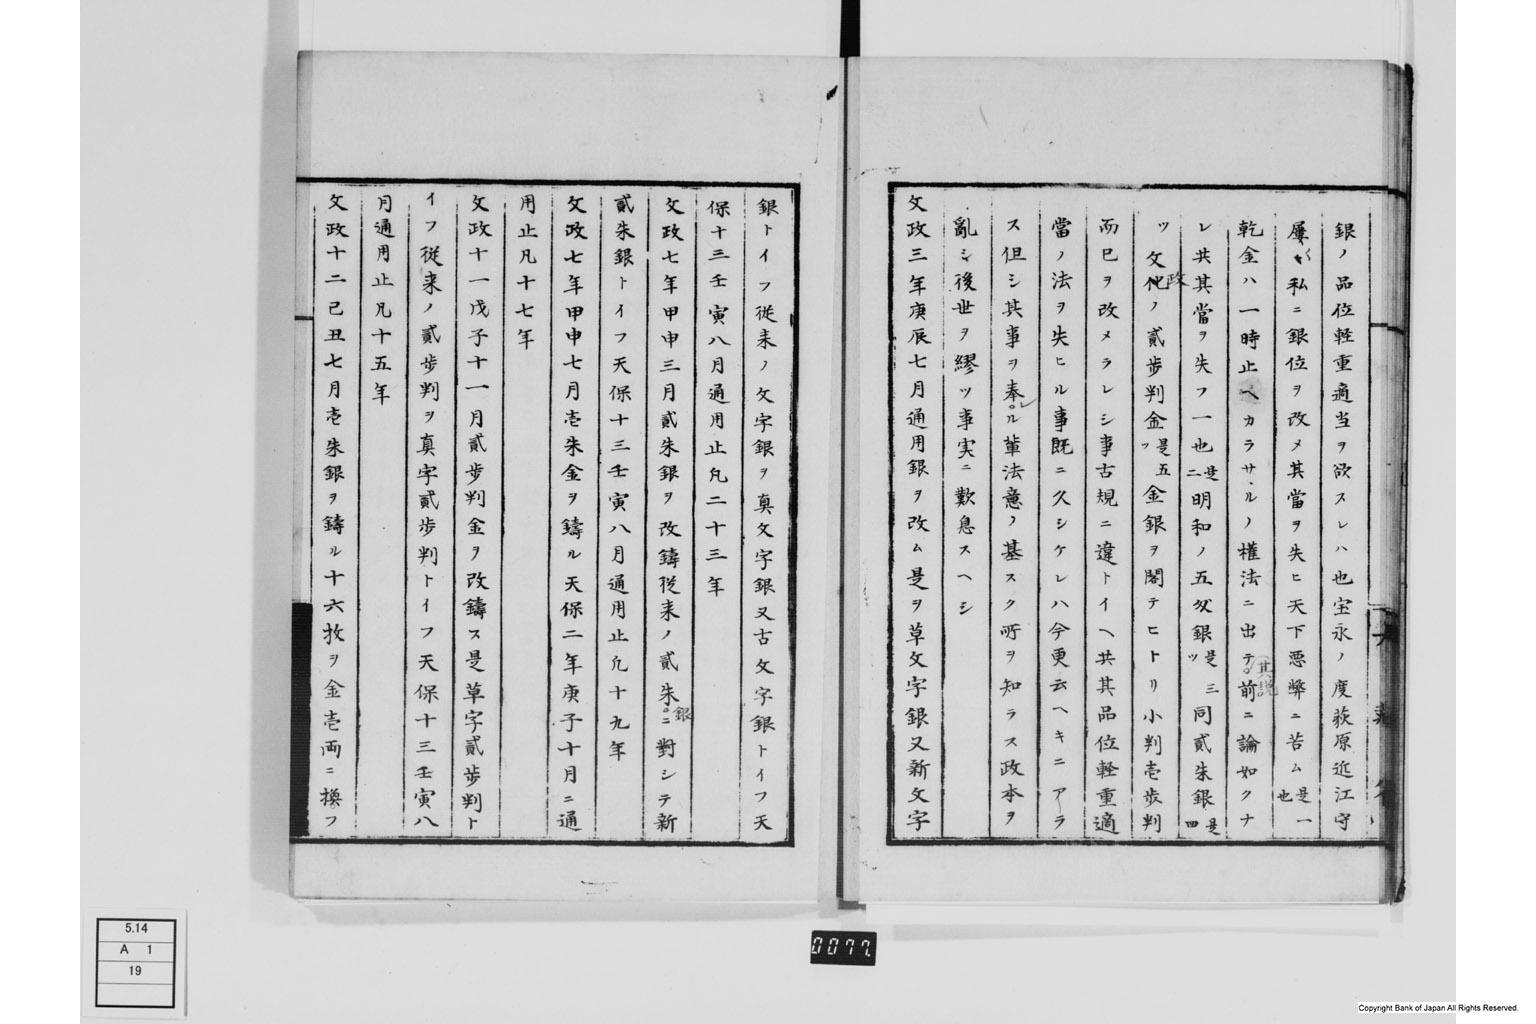 銀ノ品位軽重適当ヲ欲スレハ也宝永ノ度荻原近江守
屢〻私ニ銀位ヲ改メ其當ヲ失ヒ天下悪弊ニ苦ム是一也
乾金ハ一時止ヘカラサルノ權法ニ出テ其説前ニ論如クナ
レ共其當ヲ失フ一也是二明和ノ五匁銀是三同貳朱銀是四
ツ文政ノ貳歩判金是五ツ金銀ヲ閣テヒトリ小判壱歩判
而已ヲ改メラレシ事古規ニ違トイヘ共其品位軽重適
當ノ法ヲ失ヒル事既ニ久シケレハ今更云ヘキニアラ
ス但シ其事ヲ奉ル輩法意ノ基スク所ヲ知ラス政本ヲ
亂シ後世ヲ繆ツ事実ニ歎息スヘシ
文政三年庚辰七月通用銀ヲ改ム是ヲ草文字銀又新文字
銀トイフ従来ノ文字銀ヲ真文字銀又古文字銀トイフ天
保十三壬寅八月通用止凡二十三年
文政七年甲申三月貳朱銀ヲ改鑄従来ノ貳朱銀ニ對シテ新
貳朱銀トイフ天保十三壬寅八月通用止凡十九年
文政七年甲申七月壱朱金ヲ鑄ル天保二年庚子十月ニ通
用止凡十七年
文政十一戊子十一月貳歩判金ヲ改鑄ス是草字貳歩判ト
イフ従来ノ貳歩判ヲ真字貳歩判トイフ天保十三壬寅八
月通用止凡十五年
文政十二己丑七月壱朱銀ヲ鑄ル十六枚ヲ金壱両ニ換フ
0077.
5.14
A 1
19
Copyright Bank of Japan All Rights Reserved.